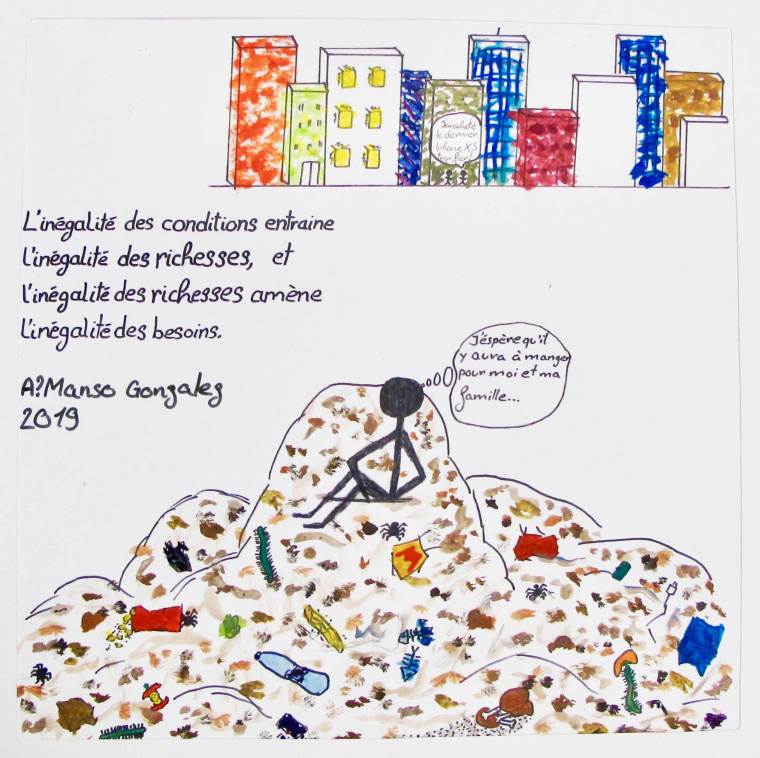 J'ai acheté
le dernier
Iphone XS
trop fier
L'inégalité des conditions entraine
l'inégalité des richesses, et
l'inégalité des richesses amène
l'inégalité des besoins.
A? Manso Gonzalez
2019
J'espère qu'il
y aura à manger
pour moi et ma
famille...